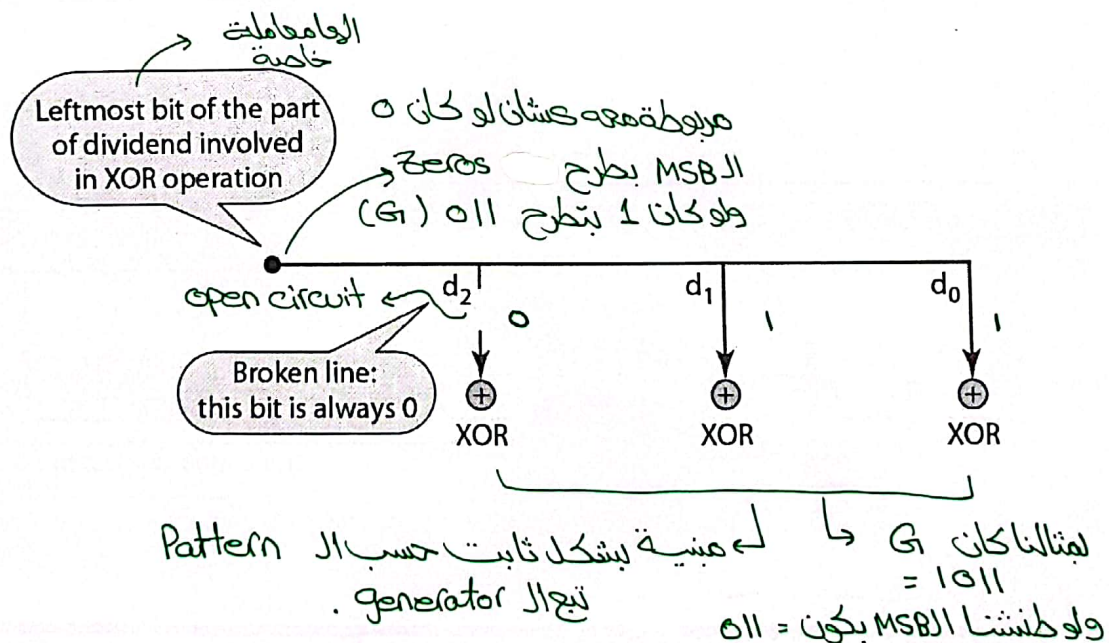 الها معاملة
خاصة
Leftmost bit of the part
of dividend involved
in XOR operation
مربوطة معه عشان لو كان 0
الـ MSB بطرح Zeros
ولو كان 1 بتطرح 011 (G)
open circuit
d2
0
d1
1
d0
1
Broken line:
this bit is always 0
+
XOR
+
XOR
+
XOR
مبنية بشكل ثابت حسب الـ Pattern
تبع الـ generator .
لمثالنا كان G
= 1011
ولو طنشنا الـ MSB بكون = 011